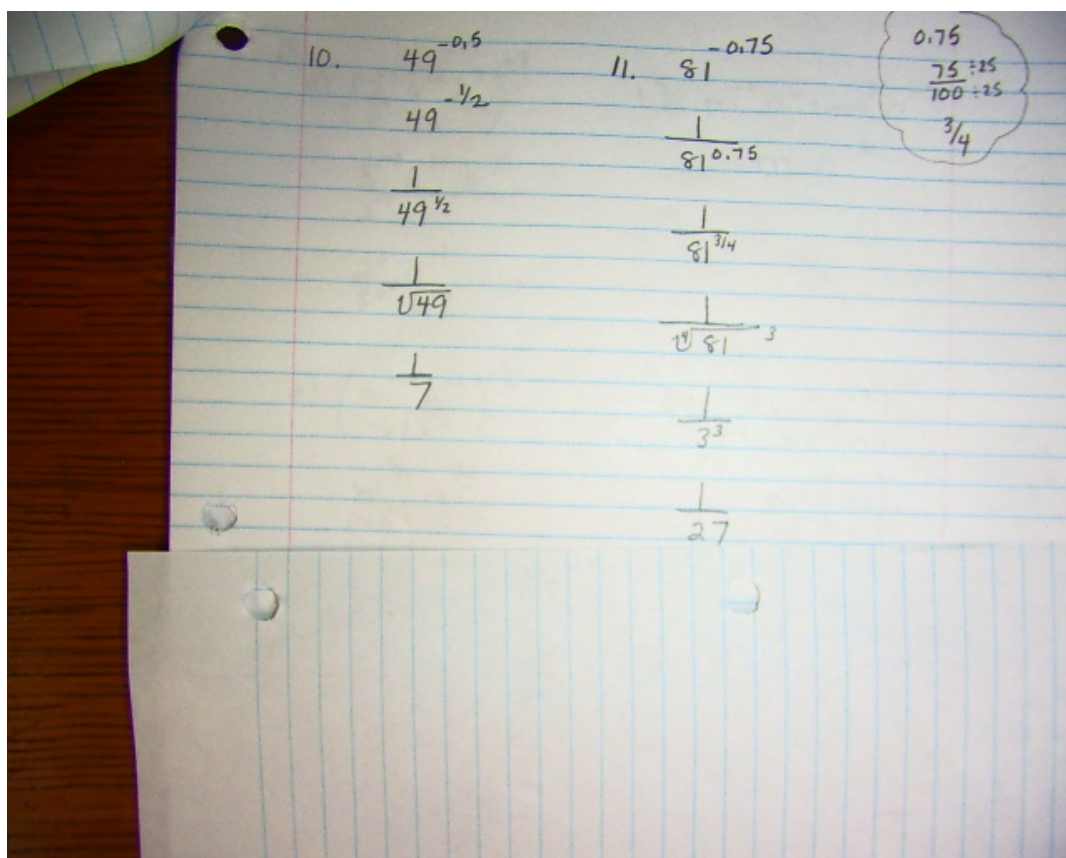 10. 49^-0.5
49^-1/2
1
49^1/2
1
√49
1
7
11. 81^-0.75
1
81^0.75
1
81^3/4
1
∜81 ^3
1
3^3
1
27
0.75
75 ÷25
100 ÷25
3/4